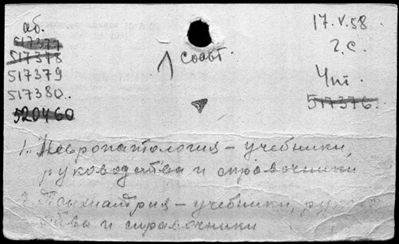 аб.
517377
517378
517379
517380.
520460
1 соавт.
17.V.58.
г.с.
Чит.
517376.
1. Невропатология – учебники,
руководства и справочники
2. Психиатрия – учебники, руко-
ства и справочники